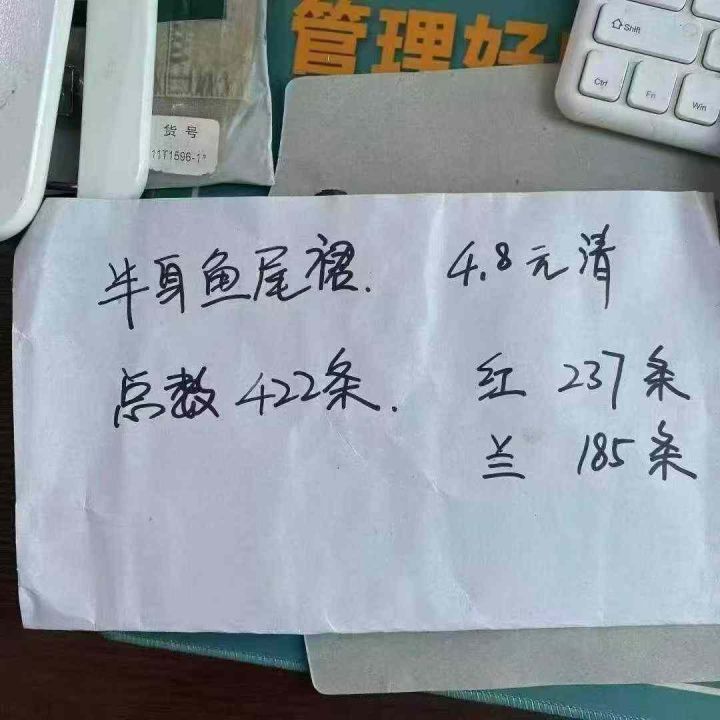 管理好
Shift
Ctrl Fn Win
货号
11T1596-1#
半身鱼尾裙. 4.8元清
点数 422条. 红 237条
兰 185条